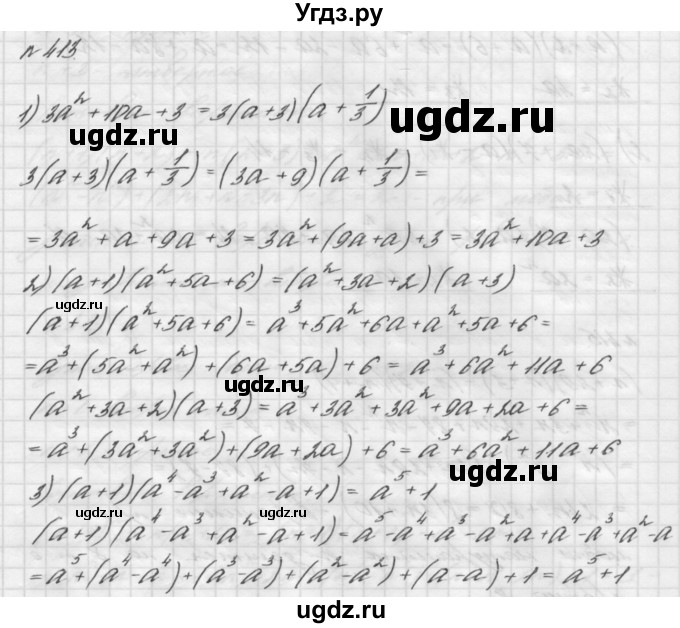 Угдз.ру
№ 413.
1) 3a² + 10a + 3 = 3(a + 3)(a + 1/3)
ugdz.ru ugdz.ru
3(a + 3)(a + 1/3) = (3a + 9)(a + 1/3) =
= 3a² + a + 9a + 3 = 3a² + (9a + a) + 3 = 3a² + 10a + 3
2) (a + 1)(a² + 5a + 6) = (a² + 3a + 2)(a + 3)
ugdz.ru
(a + 1)(a² + 5a + 6) = a³ + 5a² + 6a + a² + 5a + 6 =
= a³ + (5a² + a²) + (6a + 5a) + 6 = a³ + 6a² + 11a + 6
ugdz.ru
(a² + 3a + 2)(a + 3) = a³ + 3a² + 3a² + 9a + 2a + 6 =
= a³ + (3a² + 3a²) + (9a + 2a) + 6 = a³ + 6a² + 11a + 6
ugdz.ru
3) (a + 1)(a⁴ - a³ + a² - a + 1) = a⁵ + 1
ugdz.ru
(a + 1)(a⁴ - a³ + a² - a + 1) = a⁵ - a⁴ + a³ - a² + a + a⁴ - a³ + a² - a
= a⁵ + (a⁴ - a⁴) + (a³ - a³) + (a² - a²) + (a - a) + 1 = a⁵ + 1
ugdz.ru ugdz.ru